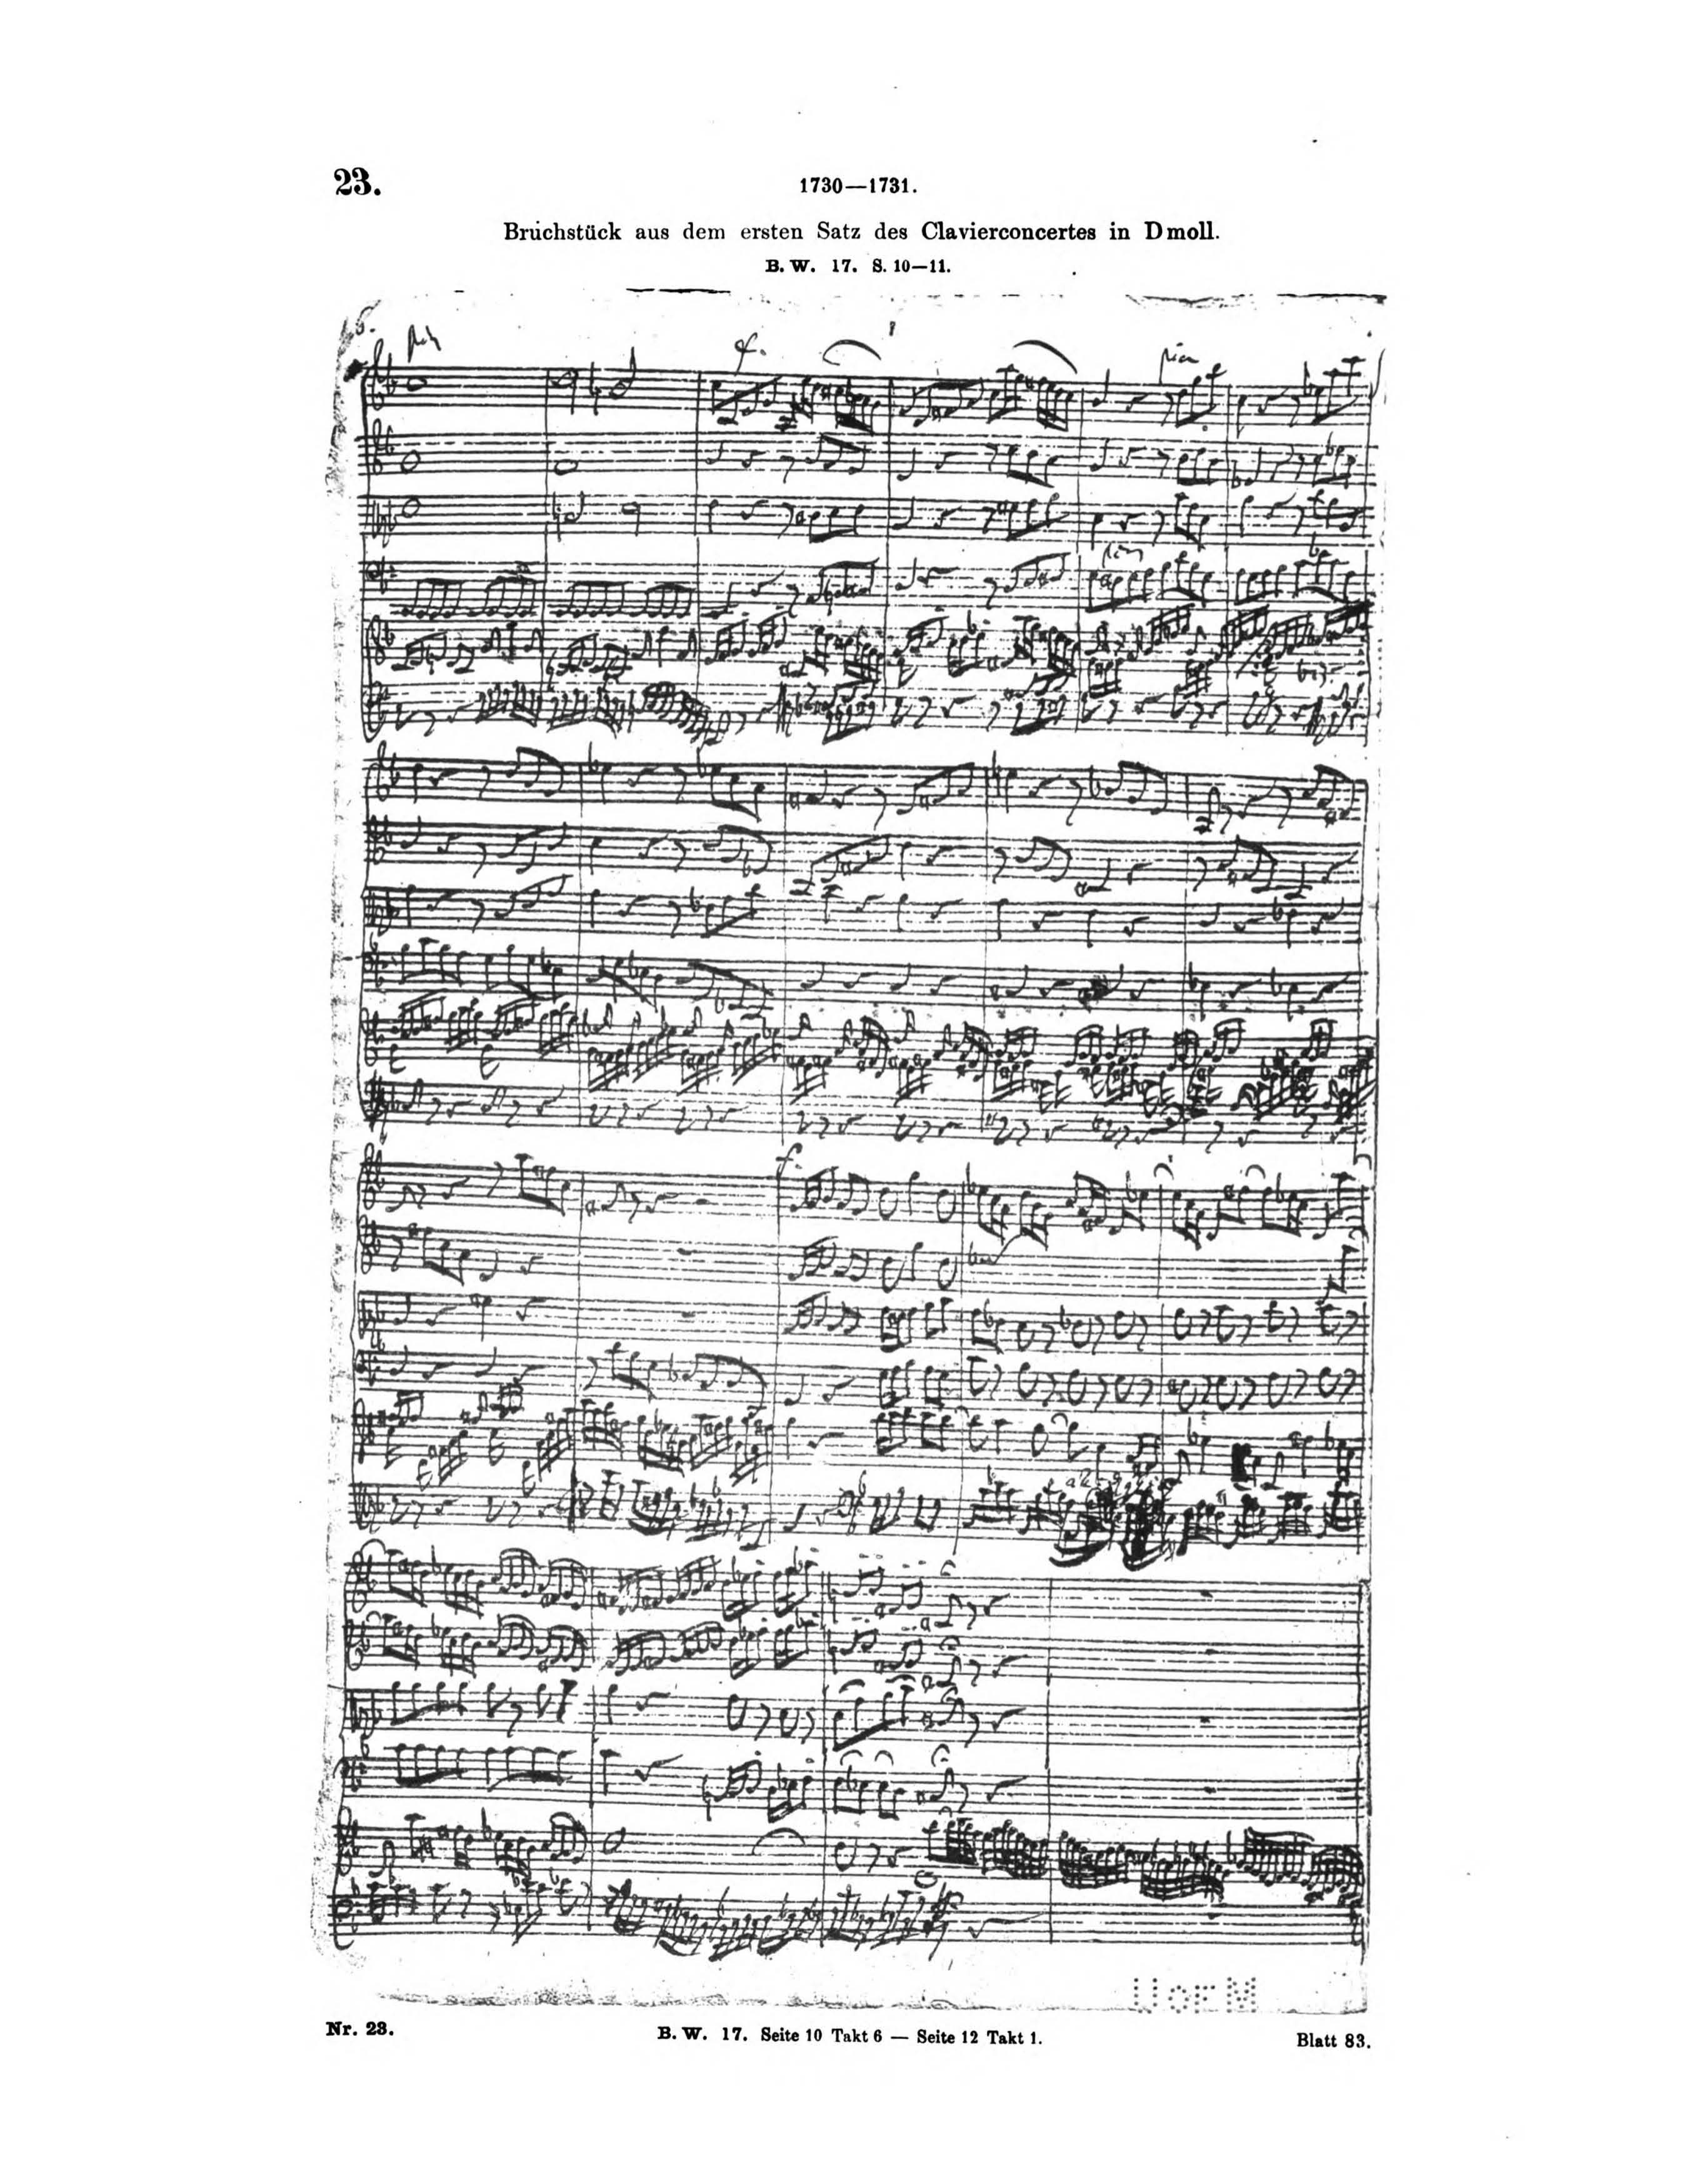 23.
1730—1731.
Bruchstück aus dem ersten Satz des Clavierconcertes in D moll.
B. W. 17. S. 10—11.
f.
pia
f.
U OF M
Nr. 23.
B. W. 17. Seite 10 Takt 6 — Seite 12 Takt 1.
Blatt 83.